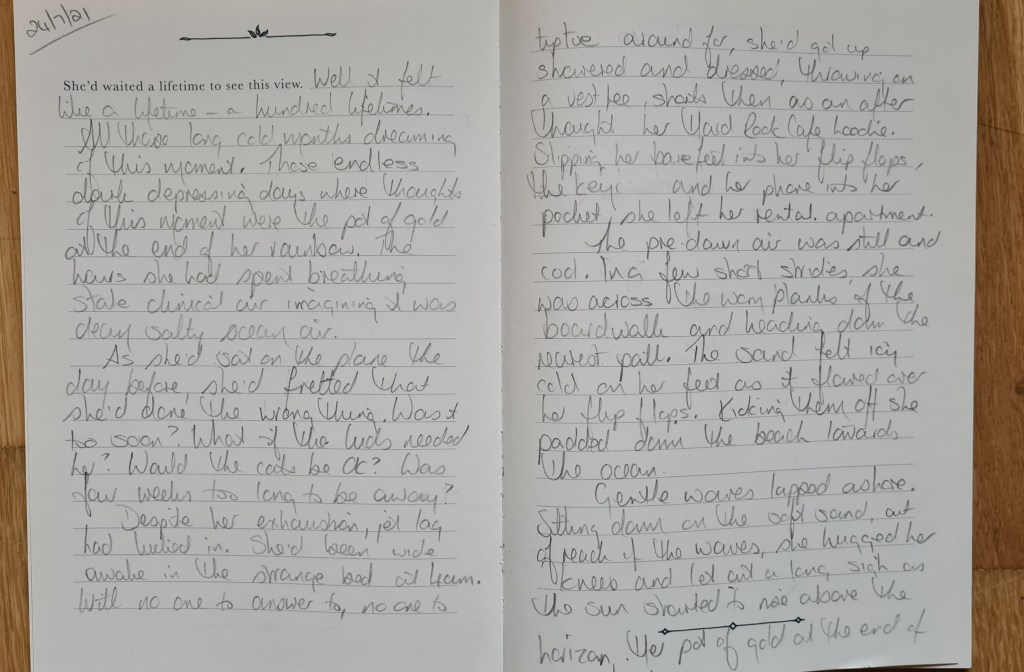 24/7/21
She'd waited a lifetime to see this view. Well it felt
like a lifetime – a hundred lifetimes.
All those long cold months dreaming
of this moment. Those endless
dark depressing days where thoughts
of this moment were the pot of gold
at the end of her rainbow. The
hours she had spent breathing
stale clinical air imagining it was
clean salty ocean air.
As she'd sat on the plane the
day before, she'd fretted that
she'd done the wrong thing. Was it
too soon? What if the kids needed
her? Would the cats be OK? Was
four weeks too long to be away?
Despite her exhaustion, jet lag
had kicked in. She'd been wide
awake in the strange bed at 4am.
With no one to answer to, no one to
tiptoe around for, she'd got up
showered and dressed, throwing on
a vest tee, shorts then as an after
thought her Hard Rock Cafe hoodie.
Slipping her bare feet into her flip flops,
the keys and her phone into her
pocket, she left her rental apartment.
The pre-dawn air was still and
cool. In a few short strides she
was across the worn planks of the
boardwalk and heading down the
nearest path. The sand felt icy
cold on her feet as it flowed over
her flip flops. Kicking them off she
padded down the beach towards
the ocean.
Gentle waves lapped ashore.
Sitting down on the soft sand, out
of reach of the waves, she hugged her
knees and let out a long sigh as
the sun started to rise above the
horizon. Her pot of gold at the end of